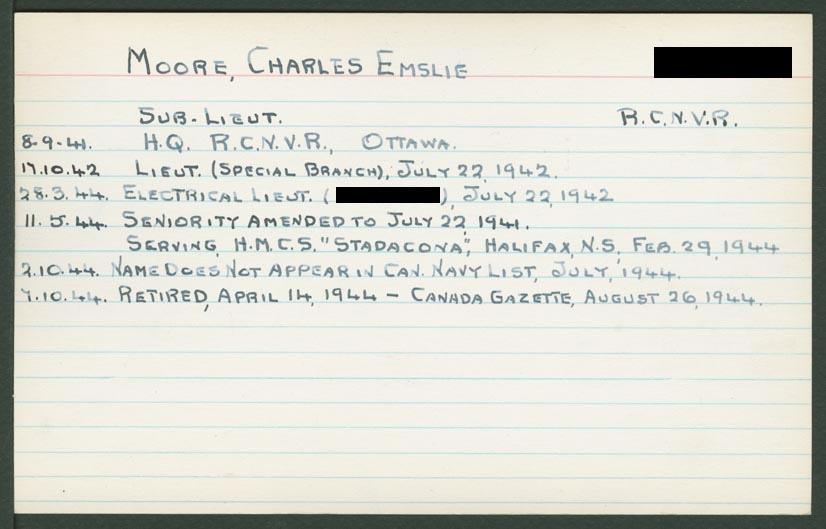 MOORE, CHARLES EMSLIE
SUB-LIEUT. R.C.N.V.R.
8-9-41. H.Q. R.C.N.V.R., OTTAWA.
17.10.42 LIEUT. (SPECIAL BRANCH), JULY 22, 1942.
28.3.44. ELECTRICAL LIEUT. ( ), JULY 22, 1942
11.5.44. SENIORITY AMENDED TO JULY 22, 1941.
SERVING, H.M.C.S. "STADACONA", HALIFAX, N.S., FEB. 29, 1944
2.10.44. NAME DOES NOT APPEAR IN CAN. NAVY LIST, JULY, 1944.
7.10.44. RETIRED, APRIL 14, 1944 - CANADA GAZETTE, AUGUST 26, 1944.